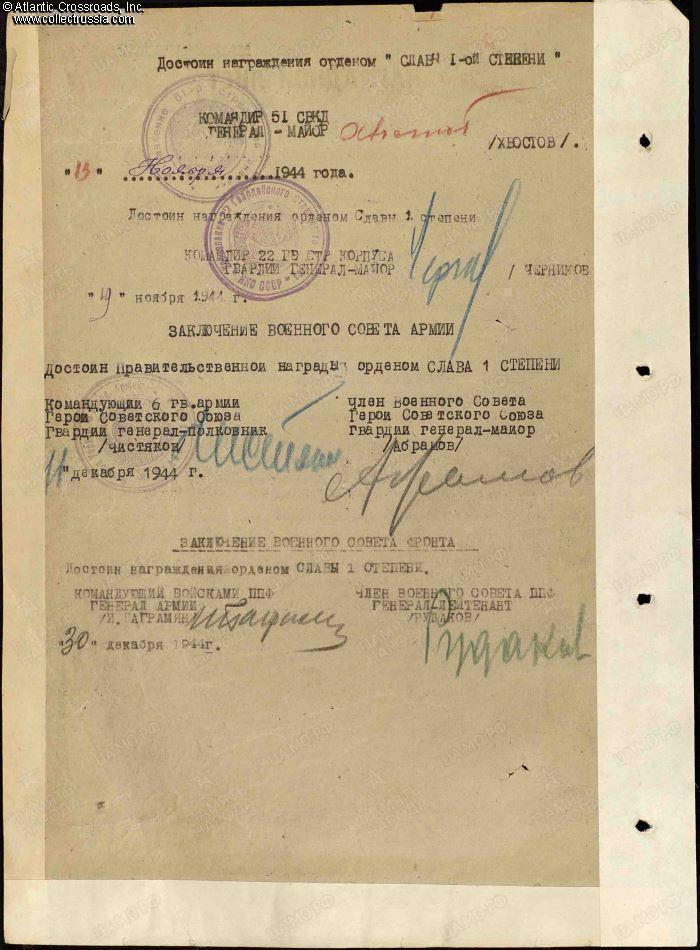 © Atlantic Crossroads, Inc.
www.collectrussia.com
Достоин награждения орденом " СЛАВЫ I-ой СТЕПЕНИ "
КОМАНДИР 51 СВКД
ГЕНЕРАЛ - МАЙОР
/ХВОСТОВ/.
"13" Ноября 1944 года.
Достоин награждения орденом Славы 1 степени
КОМАНДИР 22 ГВ СТР КОРПУСА
ГВАРДИИ ГЕНЕРАЛ-МАЙОР / ЧЕРНИКОВ
"19" ноября 1944 г.
ЗАКЛЮЧЕНИЕ ВОЕННОГО СОВЕТА АРМИИ
Достоин Правительственной награды орденом СЛАВА 1 СТЕПЕНИ
Командующий 6 гв.армии
Герой Советского Союза
Гвардии генерал-полковник
/Чистяков/
член Военного Совета
Герой Советского Союза
Гвардии генерал-майор
/Абрамов/
Абрамов
11 "декабря 1944 г.
ЗАКЛЮЧЕНИЕ ВОЕННОГО СОВЕТА ФРОНТА
Достоин награждения орденом СЛАВЫ 1 СТЕПЕНИ.
КОМАНДУЮЩИЙ ВОЙСКАМИ ППФ
ГЕНЕРАЛ АРМИИ
/И.БАГРАМЯН
ЧЛЕН ВОЕННОГО СОВЕТА ППФ
ГЕНЕРАЛ-ЛЕЙТЕНАНТ
/РУДАКОВ/
Рудаков
"30" декабря 1944г.